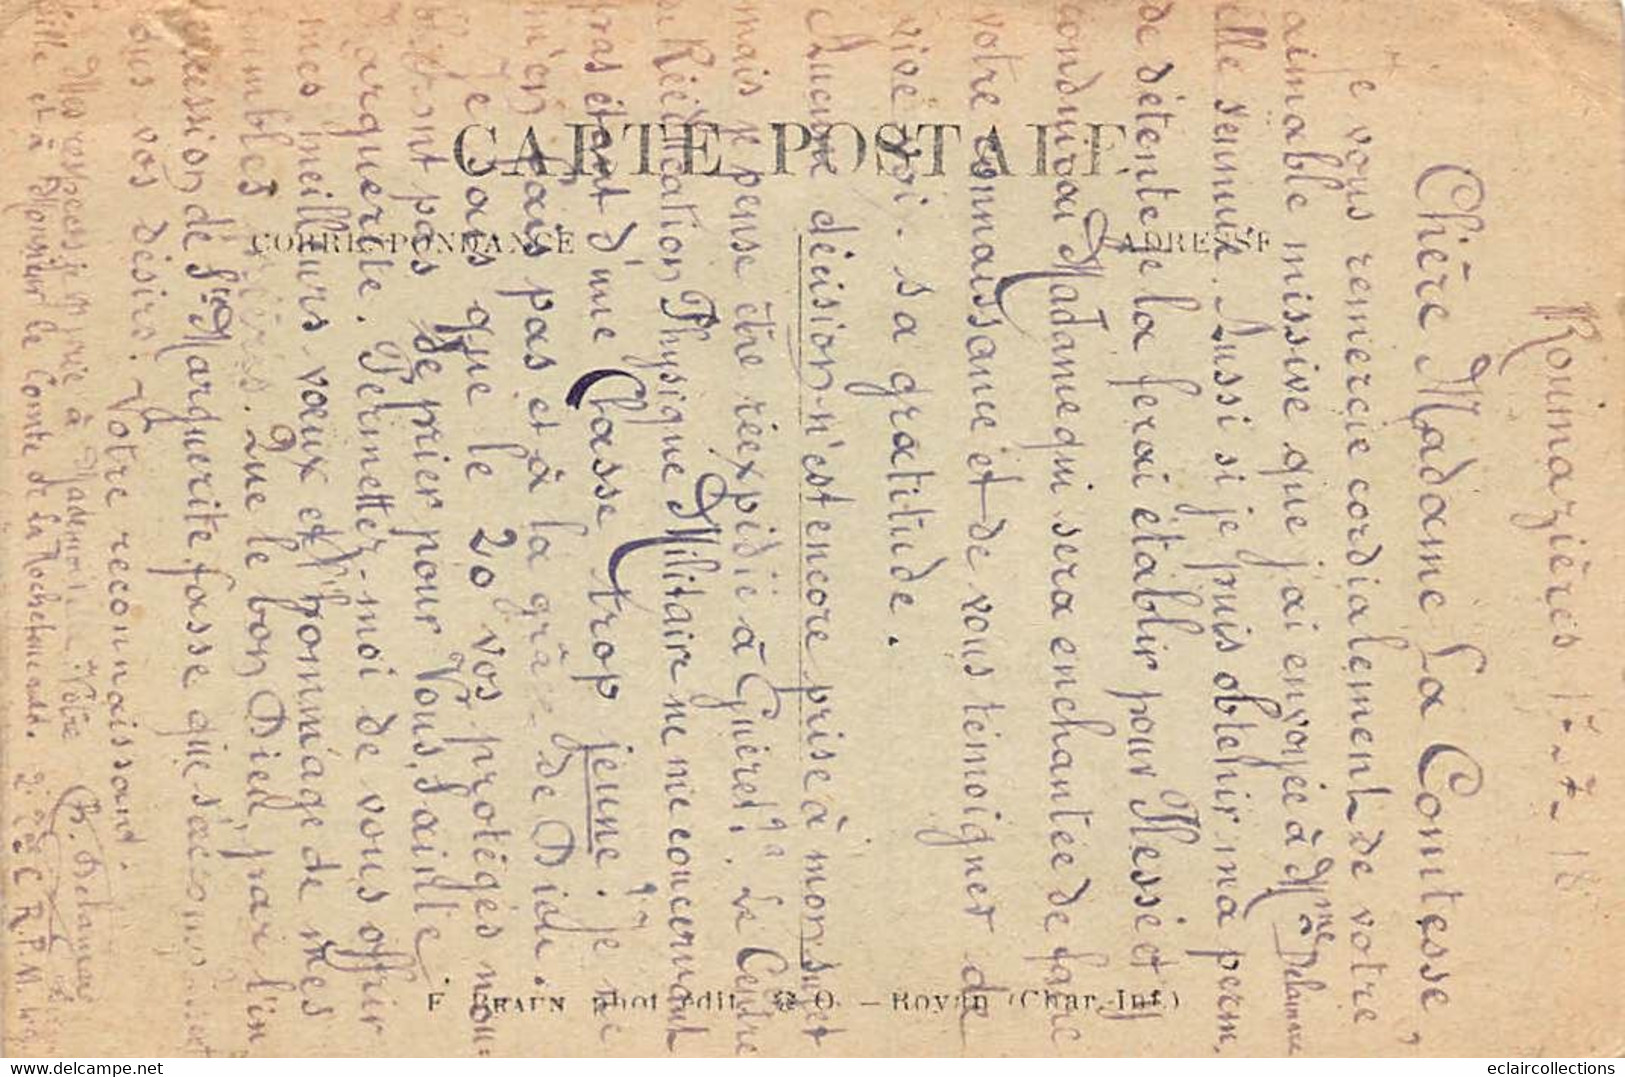 CARTE POSTALE
CORRESPONDANCE
ADRESSE
F. BRAUN phot. édit. O. — Royan (Char.-Inf.)
Roumazières 1er - 7 - 18
Chère Madame La Comtesse,
Je vous remercie cordialement de votre
aimable missive que j'ai envoyée à Mme Delamare
elle sennuie. Aussi si je puis obtenir ma perm.
de détente je la ferai établir pour Messé et
conduirai Madame qui sera enchantée de faire
votre connaissance et de vous témoigner de
vive voix sa gratitude.
Aucune décision n'est encore prise à mon sujet
mais je pense être réexpédié à Guéret. Le Centre
Rééducation Physique Militaire ne me concernant
pas étant d'une Classe trop jeune. je ne
m'en fais pas et à la grâce de Dieu.
Je sais que le 20 vos protégés n'ou-
blieront pas de prier pour Vous, Sainte
Marguerite. Permettez-moi de vous offrir
mes meilleurs vœux et l'hommage de mes
humbles prières. Que le bon Dieu, par l'in
tercession de Ste Marguerite, fasse que s'accomplissent
tous vos désirs. Votre reconnaissant.
Mes respects je vous prie à Mademoiselle Votre
fille et à Monsieur le Comte de La Rochethulon.
Delamare
C R. P. M.
eclaircollections